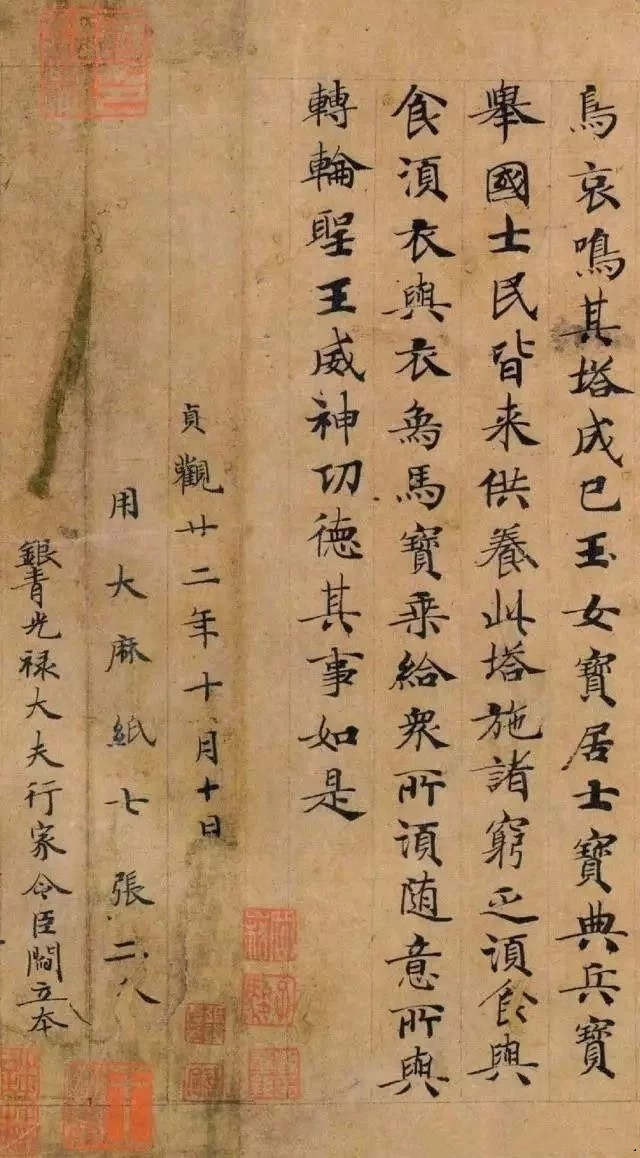 為哀鳴其塔成已玉女寶居士寶典兵寶
舉國士民皆来供養此塔施諸窮乏須食與
食須衣與衣象馬寶乘給衆所須随意所與
轉輪聖王威神功德其事如是
貞觀廿二年十月十日
用大麻紙七張二分
銀青光禄大夫行家令臣閻立本